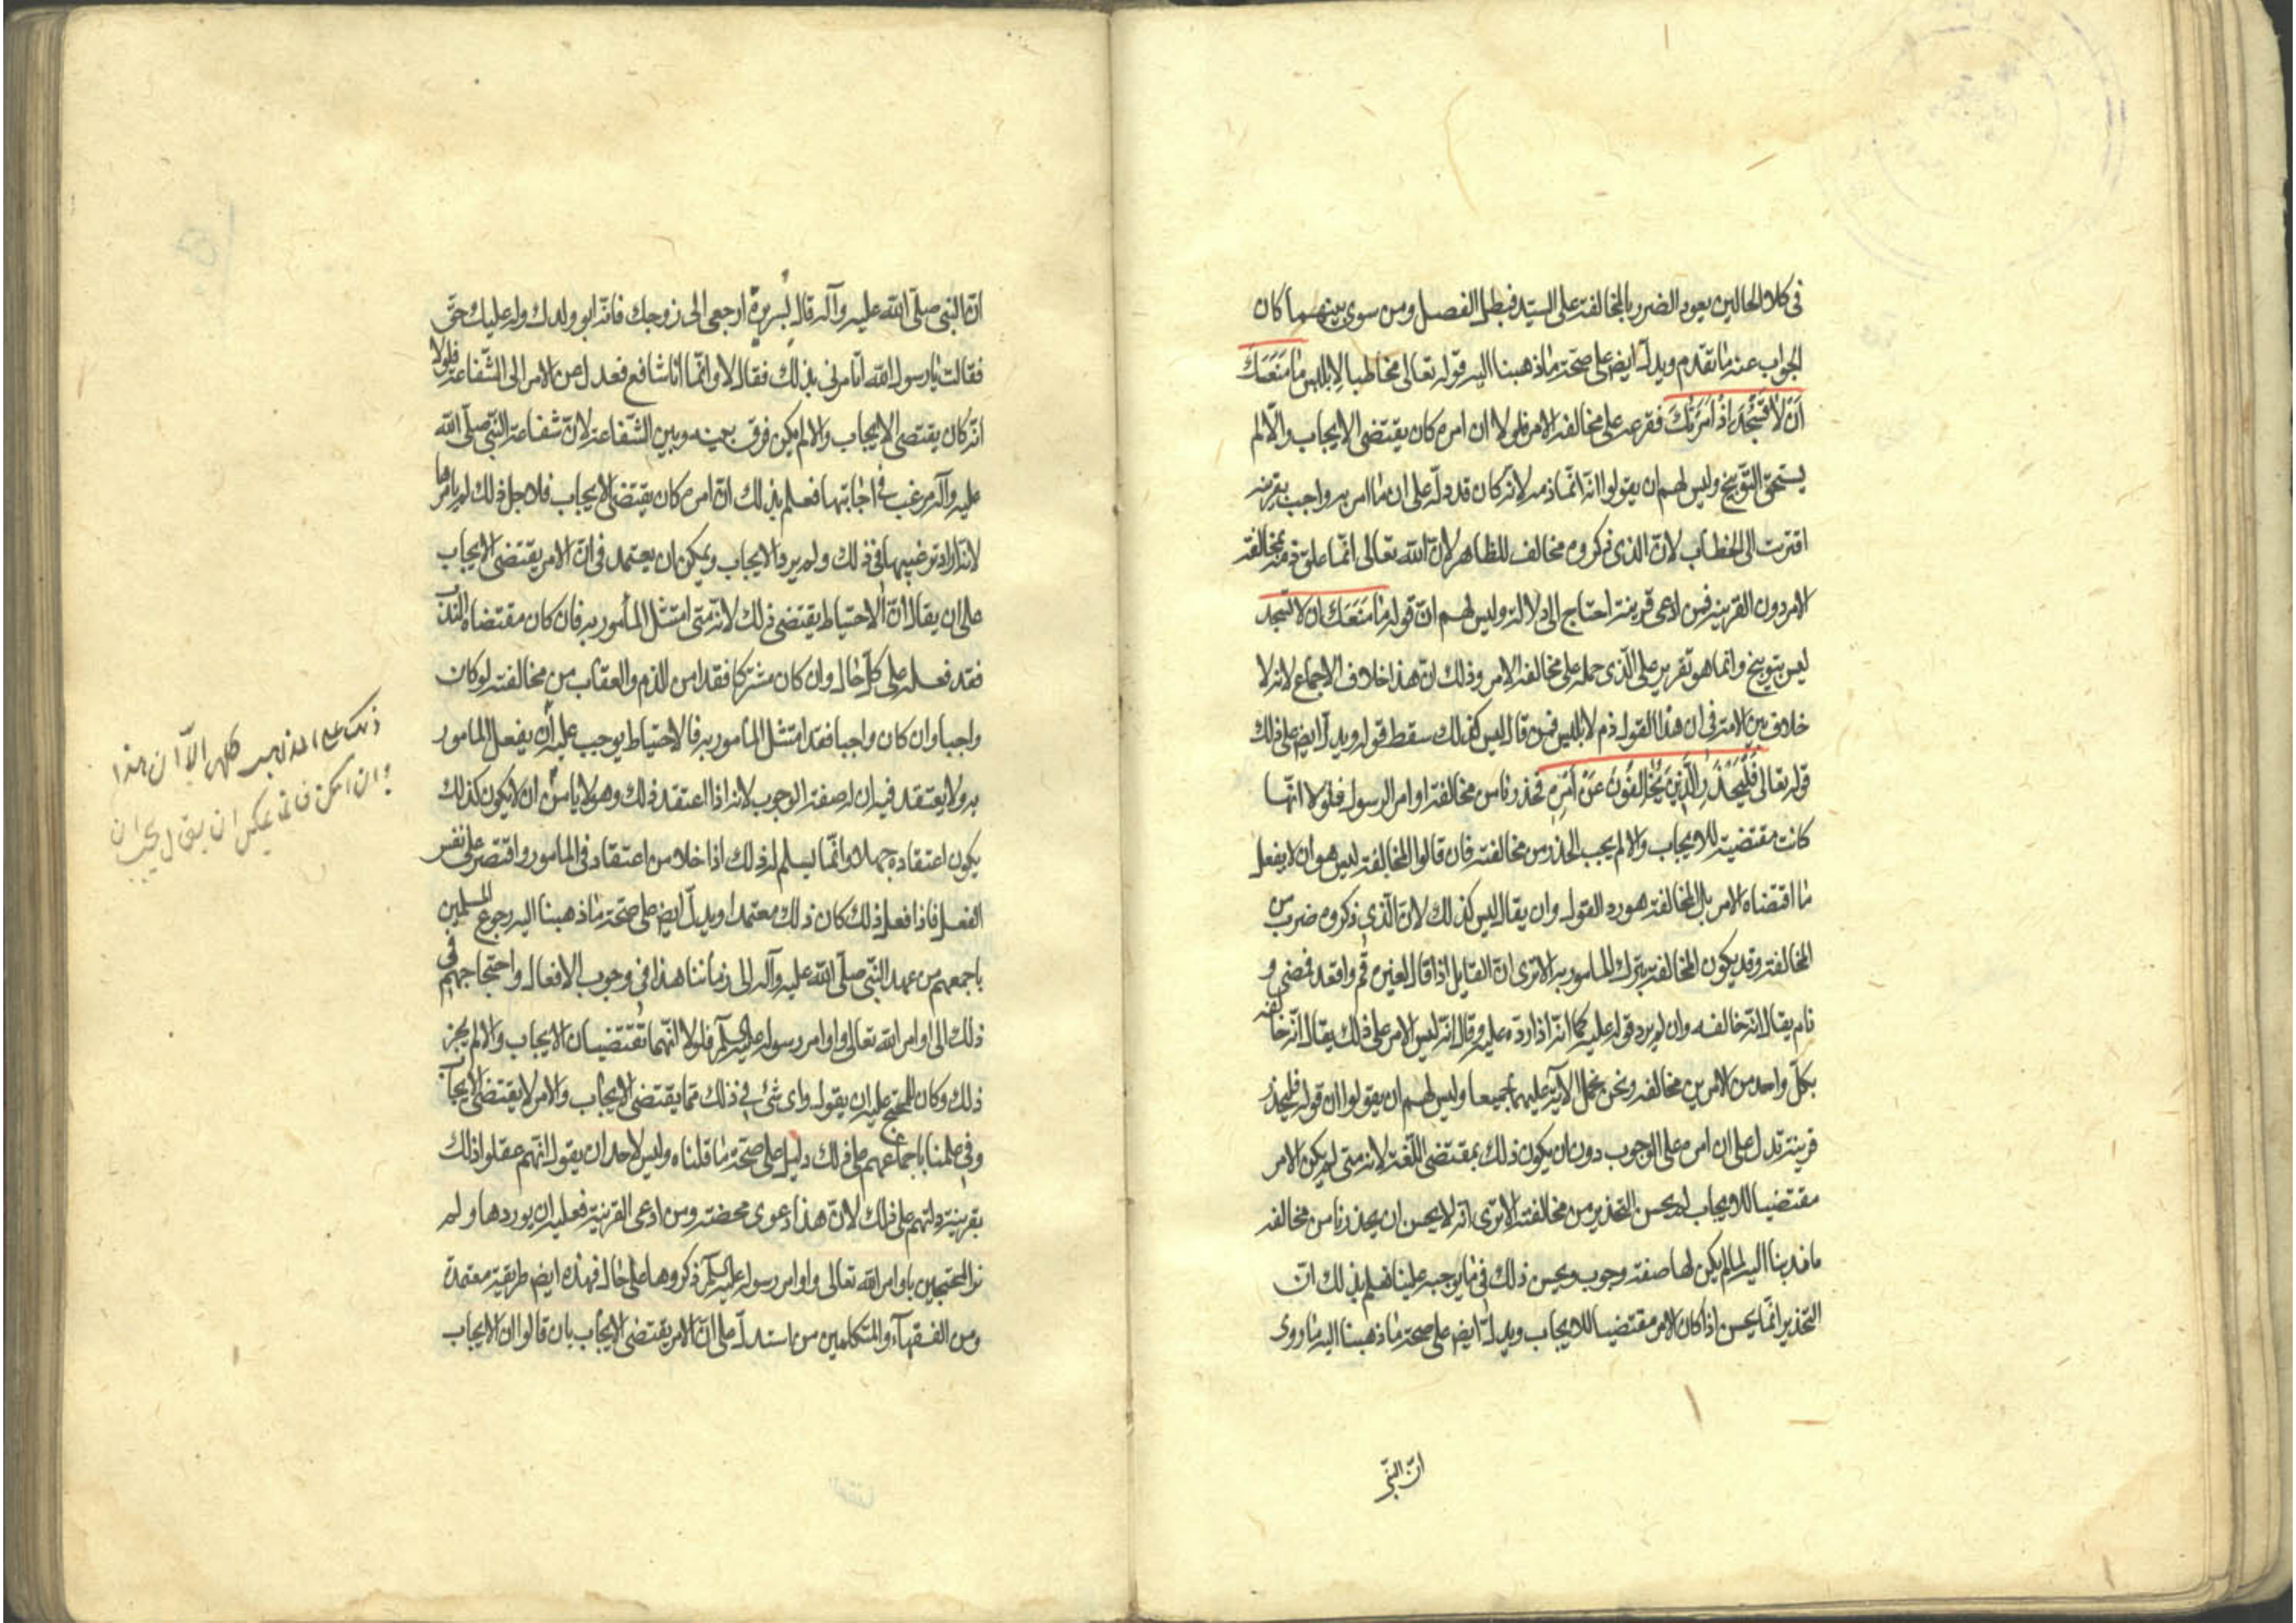 فى كلا الحالين يعود الضرر بالمخالفة على السيّد فبطل الفصل ومن سوى بينهما كان
الجواب عنه ما تقدم ويدلّ ايضا على صحّة ما ذهبنا اليه قوله تعالى مخاطبا لابليس ما مَنَعَكَ
اَنْ لا تَسْجُدَ اِذْ اَمَرْتُكَ فقرعه على مخالفة الامر فلولا ان امره كان يقتضى الايجاب والّا لم
يستحق التّوبيخ وليس لهم ان يقولوا انه انّما ذمه لانّه كان قد دلّه على ان ما امر به واجب بقرينه
اقترنت الى الخطاب لانّ الذى ذكروه مخالف للظاهر لانّ الله تعالى انّما علق ذمّه بمخالفة
الامر دون القرينه فمن ادعى قرينة احتاج الى دلالة وليس لهم انّ قوله ما مَنَعَكَ ان لا تسجد
ليس بتوبيخ وانما هو تقرير على الّذى حمله على مخالفة الامر وذلك انّ هذا خلاف الاجماع لانه لا
خلاف بين الامة فى ان هذا القول ذم لابليس فمن قال ليس كذلك سقط قوله ويدلّ ايض على ذلك
قوله تعالى فَلْيَحْذَرِ الَّذِينَ يُخَالِفُونَ عَنْ اَمْرِهِ فحذرنا من مخالفة اوامر الرسول فلولا انّها
كانت مقتضية للايجاب والا لم يجب الحذر من مخالفته فان قالوا المخالفة ليس هو ان لا يفعل
ما اقتضاه الامر بل المخالفة هو رد القول وان يقال ليس كذلك لانّ الّذى ذكروه ضرب من
المخالفة وقد يكون المخالفة بترك المامور به الا ترى انّ القايل اذا قال لغيره قُم واقعد فمضى و
نام يقال انّه خالفه وان لم يرد قوله عليه كما انّه اذا ردّه عليه وقال انّه ليس الامر على ذلك يقال انّه خالفه
بكلّ واحد من الامرين مخالفه ونحن نحمل الآية عليهما جميعا وليس لهم ان يقولوا ان قوله فليحذر
قرينة تدل على ان امره على الوجوب دون ان يكون ذلك بمقتضى اللّغة لانه متى لم يكن الامر
مقتضيا للايجاب لم يحسن التحذير من مخالفته الا ترى انّه لا يحسن ان يحذرنا من مخالفه
ما ندبنا اليه لما لم يكن لها صفة وجوب ويحسن ذلك فى ما يوجبه علينا فعلم بذلك انّ
التحذير انّما يحسن اذا كان الامر مقتضيا للايجاب ويدلّ ايض على صحة ما ذهبنا اليه ما روى
انّ النّبىّ
انّ النبى صلّى الله عليه وآله قال لبُريرة ارجعى الى زوجك فانّه ابو ولدك وله عليك حقّ
فقالت يا رسول الله أتأمرنى بذلك فقال لا وانّما انا شافع فعدل عن الامر الى الشّفاعة فلولا
انّه كان يقتضى الايجاب والا لم يكن فرق بينه وبين الشفاعة لانّ شفاعة النّبىّ صلّى الله
عليه وآله مرغب فى اجابتها فعلم بذلك انّ امره كان يقتضى الايجاب فلاجل ذلك لم يامرها
لانّه اراد ترغيبها فى ذلك ولم يرد الايجاب ويمكن ان يعتمد فى انّ الامر يقتضى الايجاب
على ان يقال انّ الاحتياط يقتضى ذلك لانّه متى امتثل المأمور به فان كان مقتضاه الندب
فقد فعله على كلّ حال وان كان مشتركا فقد امن الذم والعقاب من مخالفته لو كان
واجبا وان كان واجبا فقد امتثل المأمور به فالاحتياط يوجب عليه أن يفعل المامور
به ولا يعتقد فيه ان له صفة الوجوب لانه اذا اعتقد ذلك وهو لا يامن ان لا يكون كذلك
يكون اعتقاده جهلا وانّما يسلم له ذلك اذا خلا من اعتقاد فى المامور واقتصر على نفس
الفعل فاذا فعل ذلك كان ذلك معتمدا ويدلّ ايض على صحّة ما ذهبنا اليه رجوع المسلمين
باجمعهم من عهد النّبى صلّى الله عليه وآله الى زماننا هذا فى وجوب الافعال واحتجاجهم فى
ذلك الى اوامر الله تعالى واوامر رسوله عليه السلم فلولا انّهما تقتضيان الايجاب والا لم يجز
ذلك وكان للمحتج عليه ان يقول واى شئ فى ذلك مما يقتضى الايجاب والامر لا يقتضى الايجاب
وفى علمنا باجماعهم على ذلك دليل على صحّة ما قلناه وليس لاحد ان يقول انّهم عقلوا ذلك
بقرينة دلتهم على ذلك لانّ هذا دعوى محضة ومن ادعى القرينة فعليه ان يوردها ولم
نر المحتجين باوامر الله تعالى واوامر رسوله عليه السلم ذكروها على حال فهذه ايض طريقة معتمدة
ومن الفقهآء والمتكلمين من استدلّ على انّ الامر يقتضى الايجاب بان قالوا ان الايجاب
ذلك على المذاهب كلها الّا ان هذا
وان امكن فانه يمكن ان يقال يجب ان